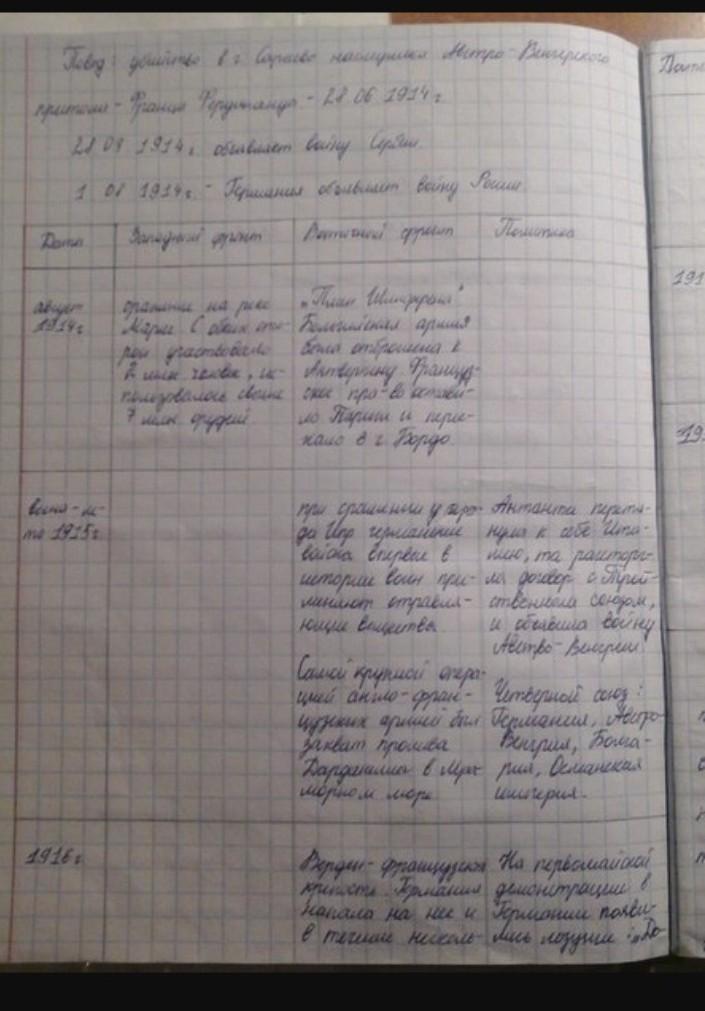 Повод: убийство в г. Сараево наследника Австро-Венгерского
престола - Франца Фердинанда - 28 06 1914 г.
28 08 1914 г. объявляет войну Сербии.
1 08 1914 г. - Германия объявляет войну России.
Дата
Западный фронт
Восточный фронт
Политика
август
1914 г.
сражение на реке
Марне. С обоих сто-
рон участвовало
2 млн. человек, ис-
пользовалось свыше
7 млн. орудий.
"План Шлиффена"
Бельгийская армия
была отброшена к
Антверпену. Француз-
ское пра-во остави-
ло Париж и перее-
хало в г. Бордо.
весна-ле-
то 1915 г.
при сражении у горо-
да Ипр германские
войска впервые в
истории войн при-
меняют отравля-
ющие вещества.
Самой крупной опера-
цией англо-фран-
цузских армий был
захват пролива
Дарданеллы в Мра-
морном море
Антанта перетя-
нула к себе Ита-
лию, та расторг-
ла договор с Трой-
ственным союзом,
и объявила войну
Австро-Венгрии.
Четверной союз:
Германия, Австро-
Венгрия, Болга-
рия, Османская
империя.
1916 г.
Верден - французская
крепость. Германия
напала на нее и
в течение несколь-
На первомайской
демонстрации в
Германии появи-
лись лозунги: "До-
Дата
191
191